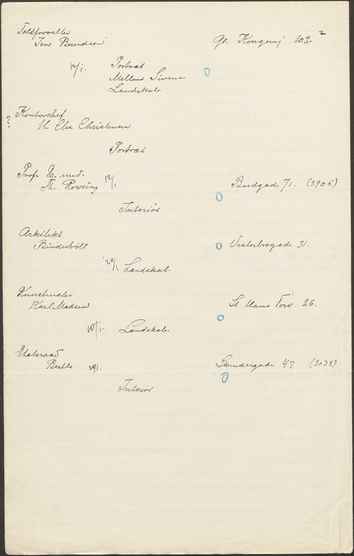 Toldforvalter
Jens Bendsen Gl. Kongevej 103 2
/1. Portræt
Mellem
Landskab
? Kontorchef
Th. Else Christensen
Portræt
Prof. Dr. med.
Th. Rovsing 1/1. Bredgade 71. (3905)
Interiør
Arkitekt
Bindesböll Vesterbrogade 31.
/1. Landskab.
Kunstmaler
Karl Madsen St. Hans Torv 26.
/1. Landskab.
Etatsraad
47 (3032)
Interiør